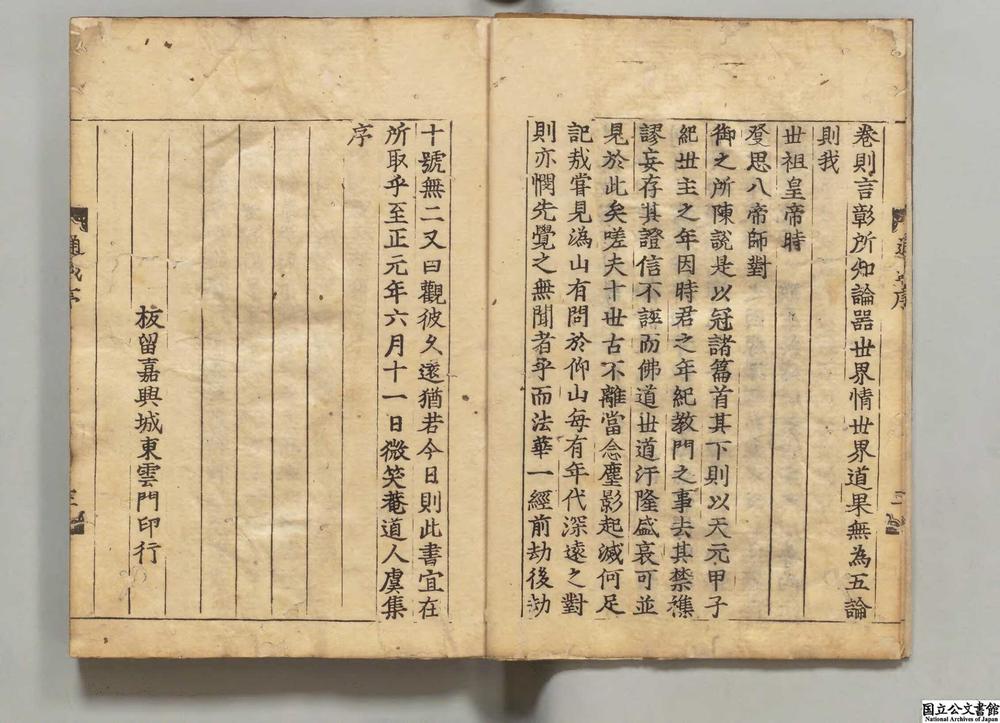 卷則言彰所知論器世界情世界道果無為五論
則我
世祖皇帝時
發思八帝師對
御之所陳說是以冠諸篇首其下則以天元甲子
紀世主之年因時君之年紀教門之事去其禁襍
謬妄存其證信不誣而佛道世道汙隆盛衰可並
見於此矣嗟夫十世古不離當念塵影起滅何足
記哉嘗見溈山有問於仰山每有年代深遠之對
則亦憫先覺之無聞者乎而法華一經前劫後劫
十號無二又曰觀彼久遠猶若今日則此書宜在
所取乎至正元年六月十一日微笑菴道人虞集
序
板留嘉興城東雲門印行
通 序
三
国立公文書館
National Archives of Japan